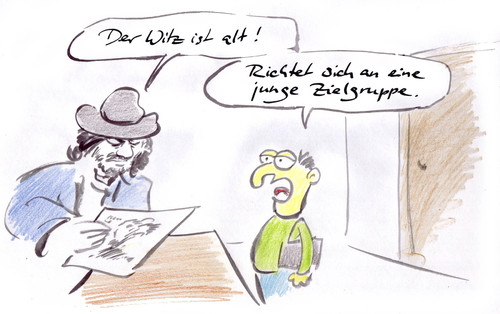 Der Witz ist alt!
Richtet sich an eine
junge Zielgruppe.